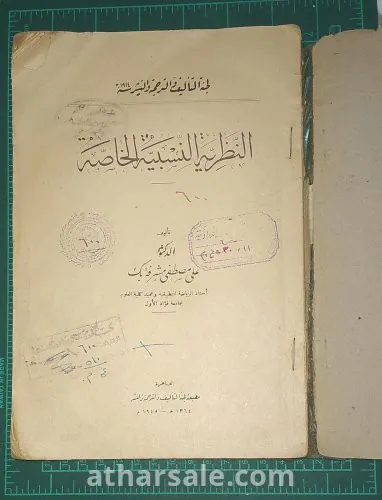 لجنة التأليف والترجمة والنشر
النظرية النسبية الخاصة
٦٠٠
تأليف
الدكتور
علي مصطفى مشرفة بك
أستاذ الرياضة التطبيقية وعميد كلية العلوم
بجامعة فؤاد الأول
٦٠٠
٦٠٠
القاهرة
مطبعة لجنة التأليف والترجمة والنشر
١٣٦٤ هـ — ١٩٤٥ م
atharsale.com